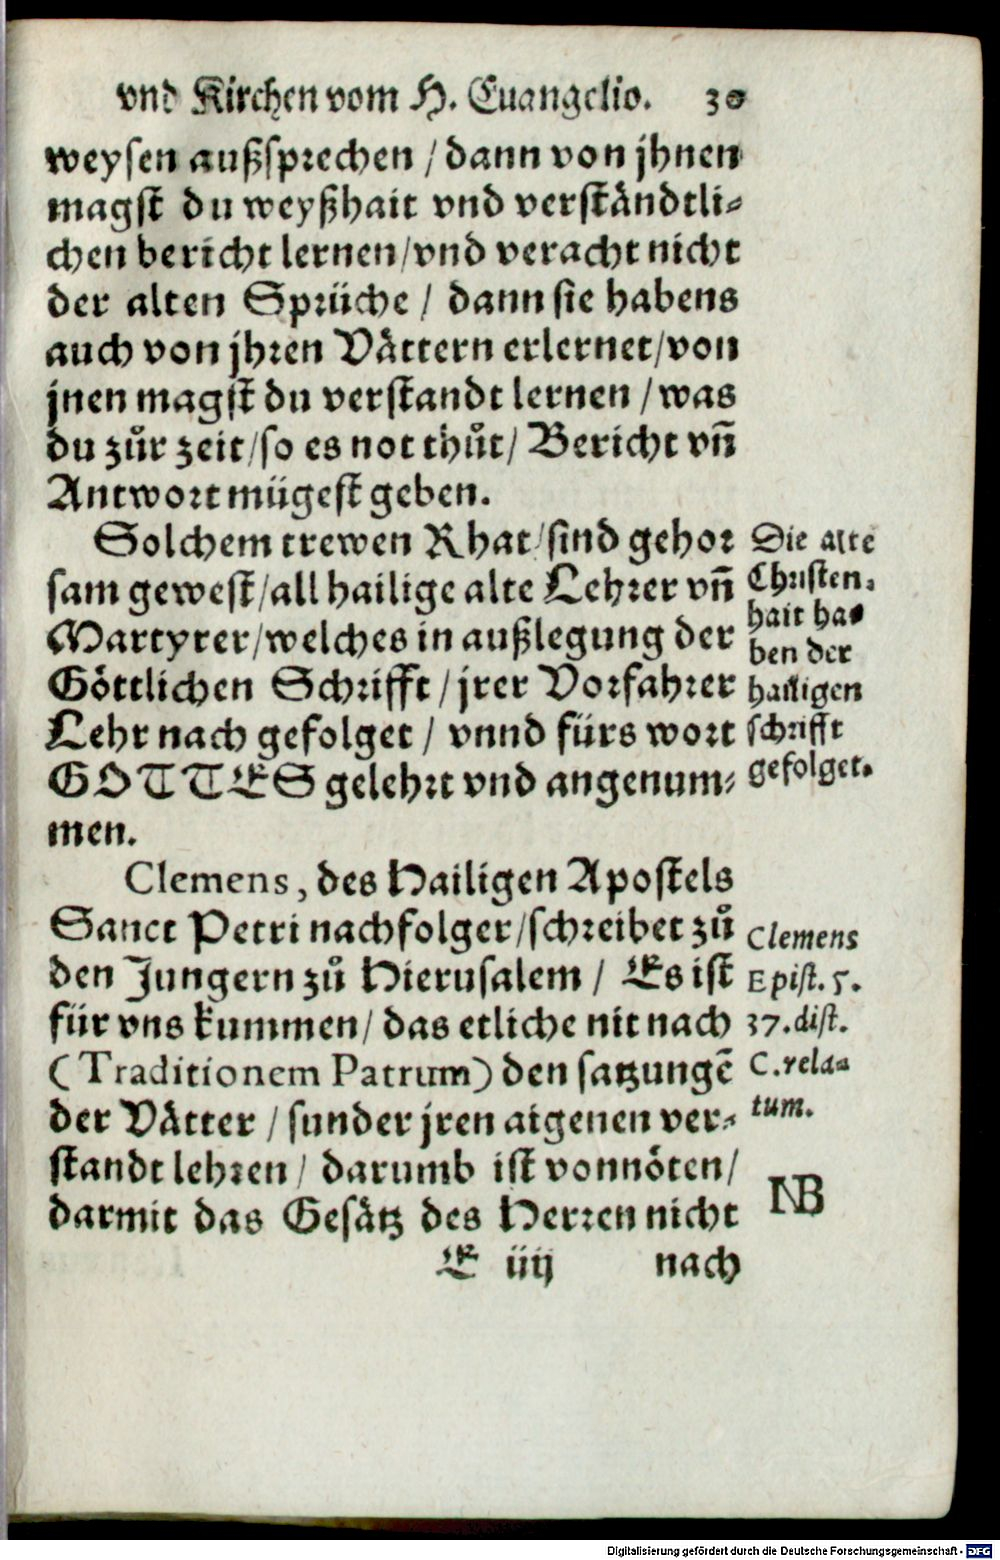 vnd Kirchen vom H. Euangelio. 30
weysen außsprechen / dann von jhnen
magst du weyßhait vnd verståndtli⸗
chen bericht lernen / vnd veracht nicht
der alten Sprüche / dann sie habens
auch von jhren Våttern erlernet / von
jnen magst du verstandt lernen / was
du zůr zeit / so es not thůt / Bericht vñ
Antwort mügest geben.
Solchem trewen Rhat / sind gehor
sam gewest / all hailige alte Lehrer vñ
Martyrer / welches in außlegung der
Göttlichen Schrifft / jrer Vorfahrer
Lehr nach gefolget / vnnd fürs wort
GOTTES gelehrt vnd angenum⸗
men.
Die alte
Christen⸗
hait ha⸗
ben der
hailigen
schrifft
gefolget.
Clemens, des Hailigen Apostels
Sanct Petri nachfolger / schreibet zů
den Jungern zů Hierusalem / Es ist
für vns kummen / das etliche nit nach
(Traditionem Patrum) den satzungē
der Våtter / sunder jren aigenen ver⸗
standt lehren / darumb ist vonnöten /
darmit das Gesåtz des Herren nicht
Clemens
Epist. 5.
37. dist.
C. rela⸗
tum.
NB
E iiij nach
Digitalisierung gefördert durch die Deutsche Forschungsgemeinschaft - DFG